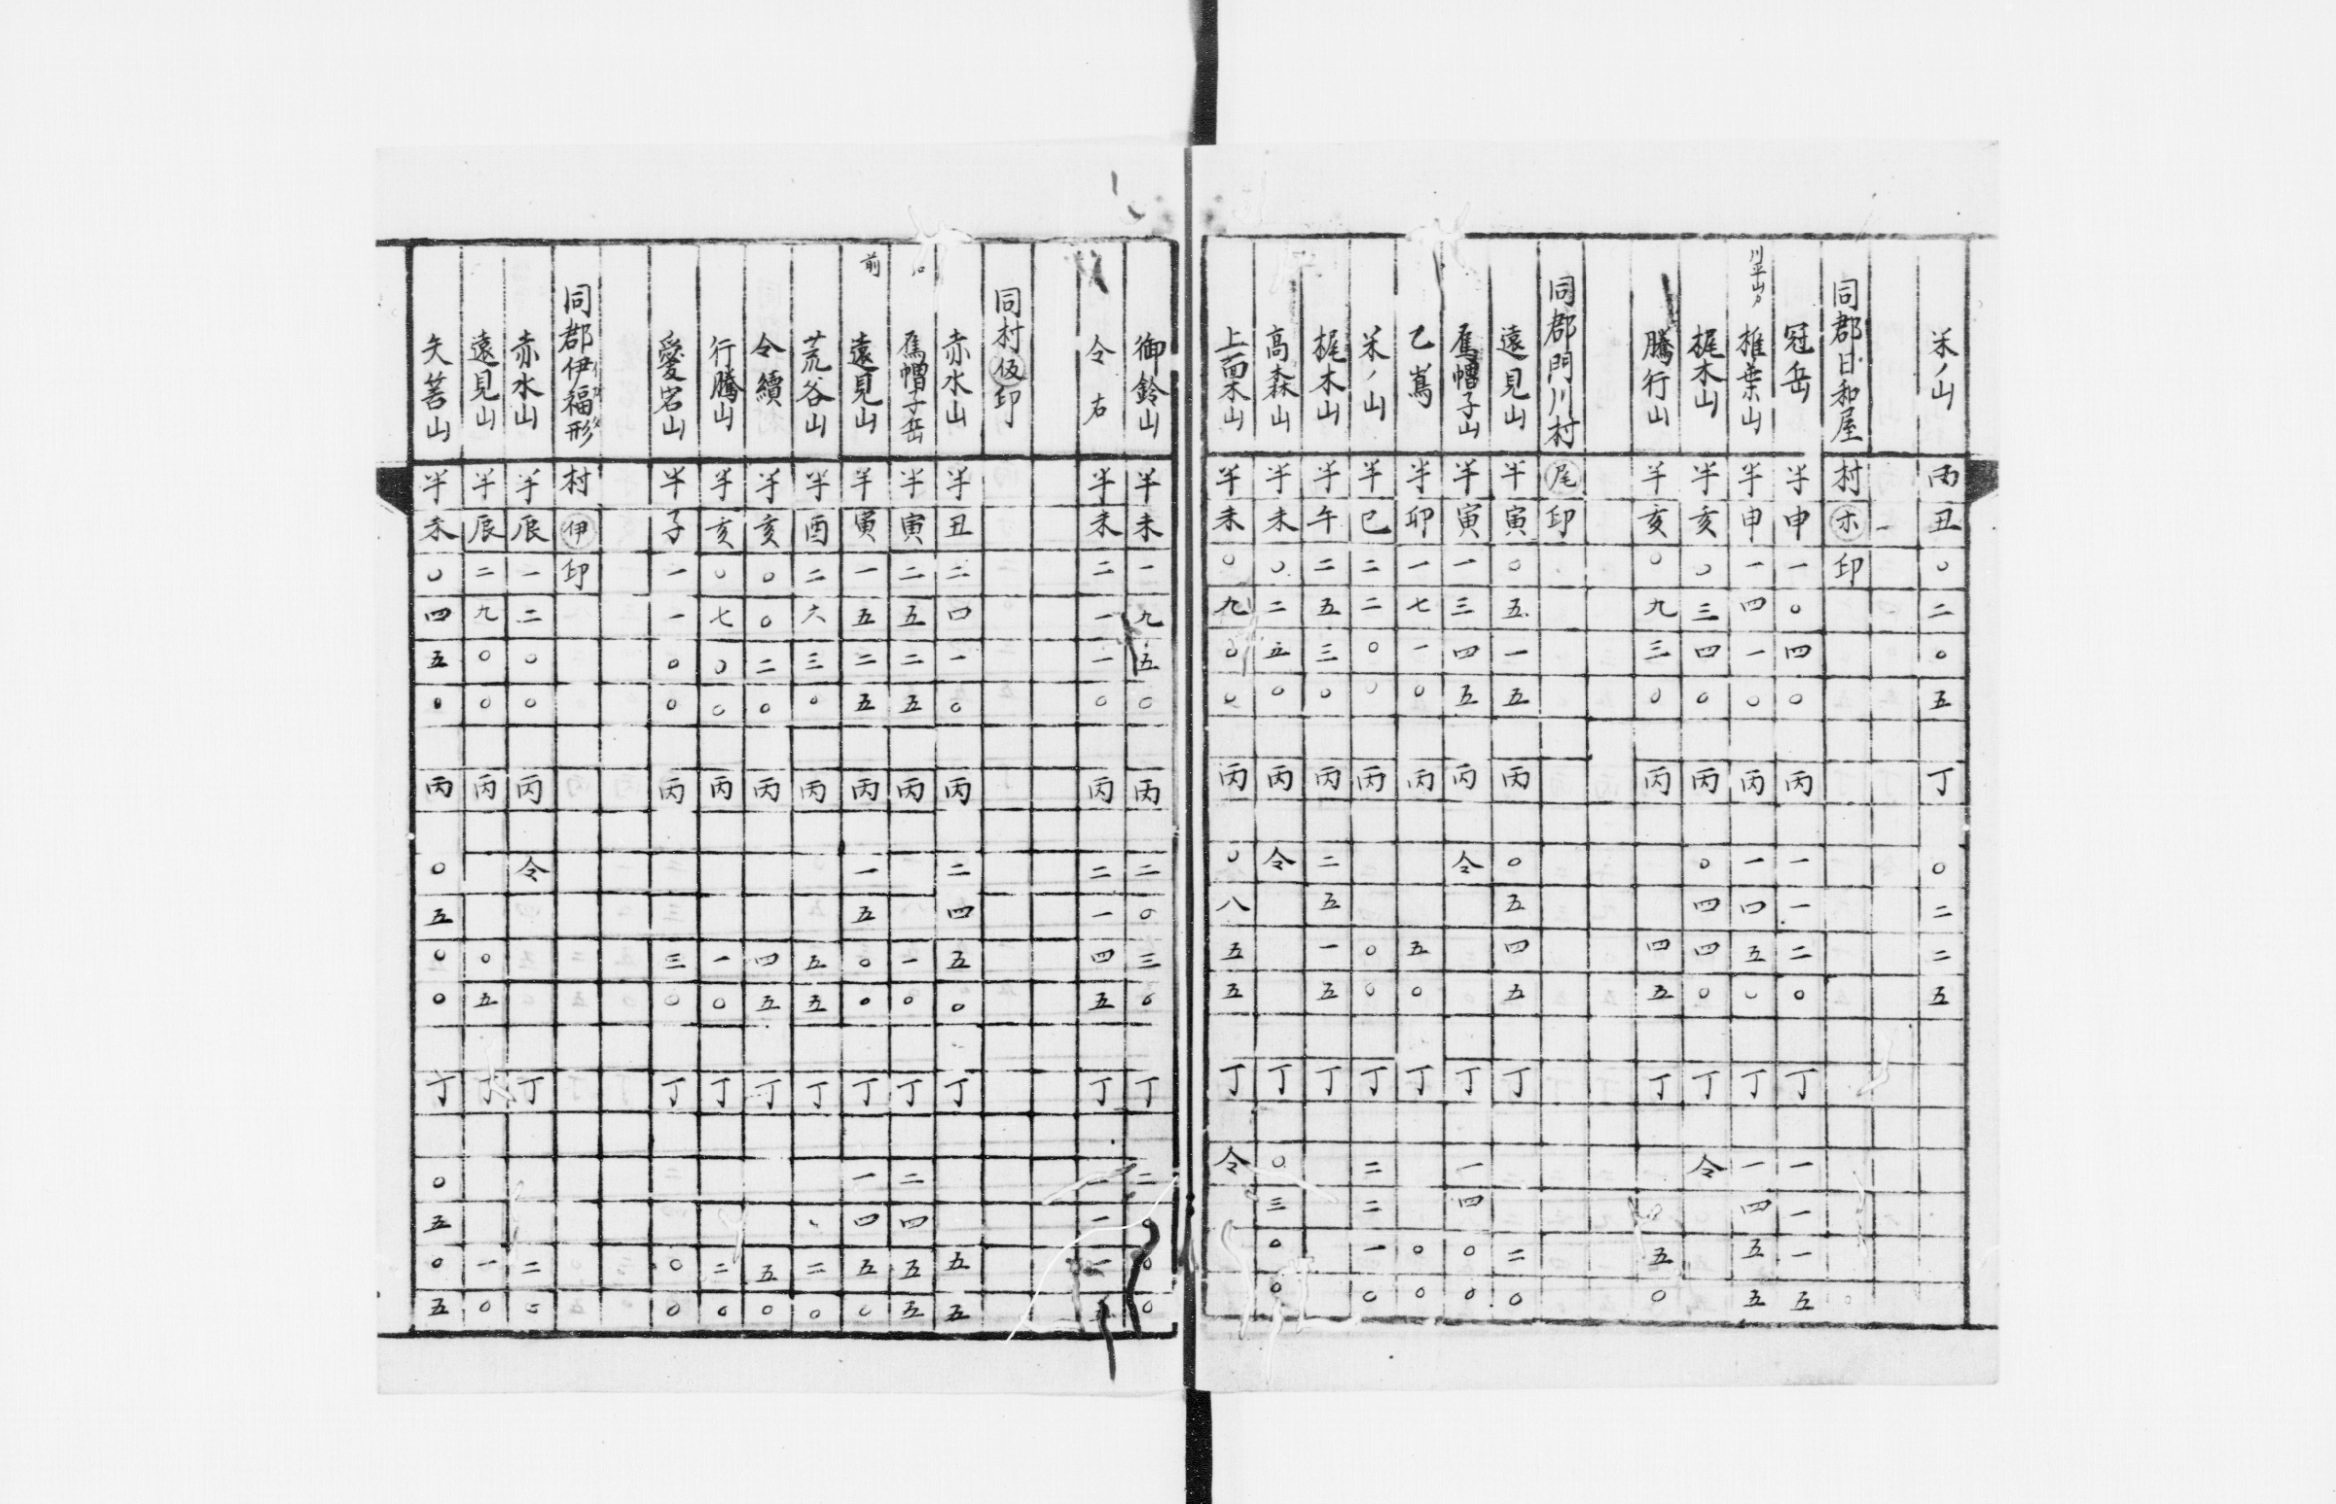 米ノ山 丙丑〇二〇五 丁 〇二二五
同郡日和屋村 ホ 印
冠岳 半申一〇四〇 丙 一一二〇 丁 一一一五
川平山カ 椎葉山 半申一四一〇 丙 一四五〇 丁 一四五五
梶木山 半亥〇三四〇 丙 〇四四〇 丁 令
騰行山 半亥〇九三〇 丙 四五 丁 五〇
同郡門川村 尾 印
遠見山 半寅〇五一五 丙 〇五四五 丁 二〇
烏帽子山 半寅一三四五 丙 令 丁 一四〇〇
乙嶌 半卯一七一〇 丙 五〇 丁 〇〇
米ノ山 半巳二二〇〇 丙 〇〇 丁 二二一〇
梶木山 半午二五三〇 丙 二五一五 丁
高森山 半未〇二五〇 丙 令 丁 〇三〇〇
上面木山 半未〇九〇〇 丙 〇八五五 丁 令
御鈴山 半未一九五〇 丙 二〇三〇 丁 二〇〇〇
令右 半未二一一〇 丙 二一四五 丁 二一五
同村 仮 印
赤水山 半丑二四一〇 丙 二四五〇 丁 五五
烏帽子岳 半寅二五二五 丙 一〇 丁 二四五五
前 遠見山 半寅一五二五 丙 一五〇〇 丁 一四五〇
荒谷山 半酉二六三〇 丙 五五 丁 二〇
令續 半亥〇〇二〇 丙 四五 丁 五〇
行騰山 半亥〇七〇〇 丙 一〇 丁 二〇
愛宕山 半子一一〇〇 丙 三〇 丁 〇〇
同郡伊福形村 伊 印
赤水山 半辰一二〇〇 丙 令 丁 二〇
遠見山 半辰二九〇〇 丙 〇五 丁 一〇
矢筈山 半未〇四五〇 丙 〇五〇〇 丁 〇五〇五